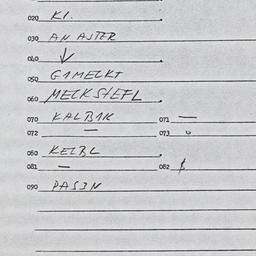 020 KI.
030 AN ASTER
040 ↓
050 GAMECKT
060 MECKSIEFL
070 KALBAK 071 —
072 — 073
080 KELBL
081 — 082
090 PASIN